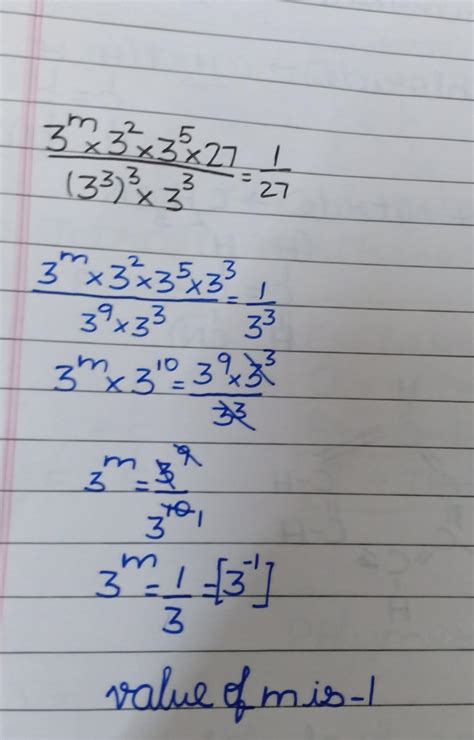 3^m × 3^2 × 3^5 × 27 / (3^3)^3 × 3^3 = 1/27
3^m × 3^2 × 3^5 × 3^3 / 3^9 × 3^3 = 1/3^3
3^m × 3^10 = 3^9 × 3^3 / 3^3
3^m = 3^9 / 3^10 1
3^m = 1/3 = [3^-1]
value of m is -1